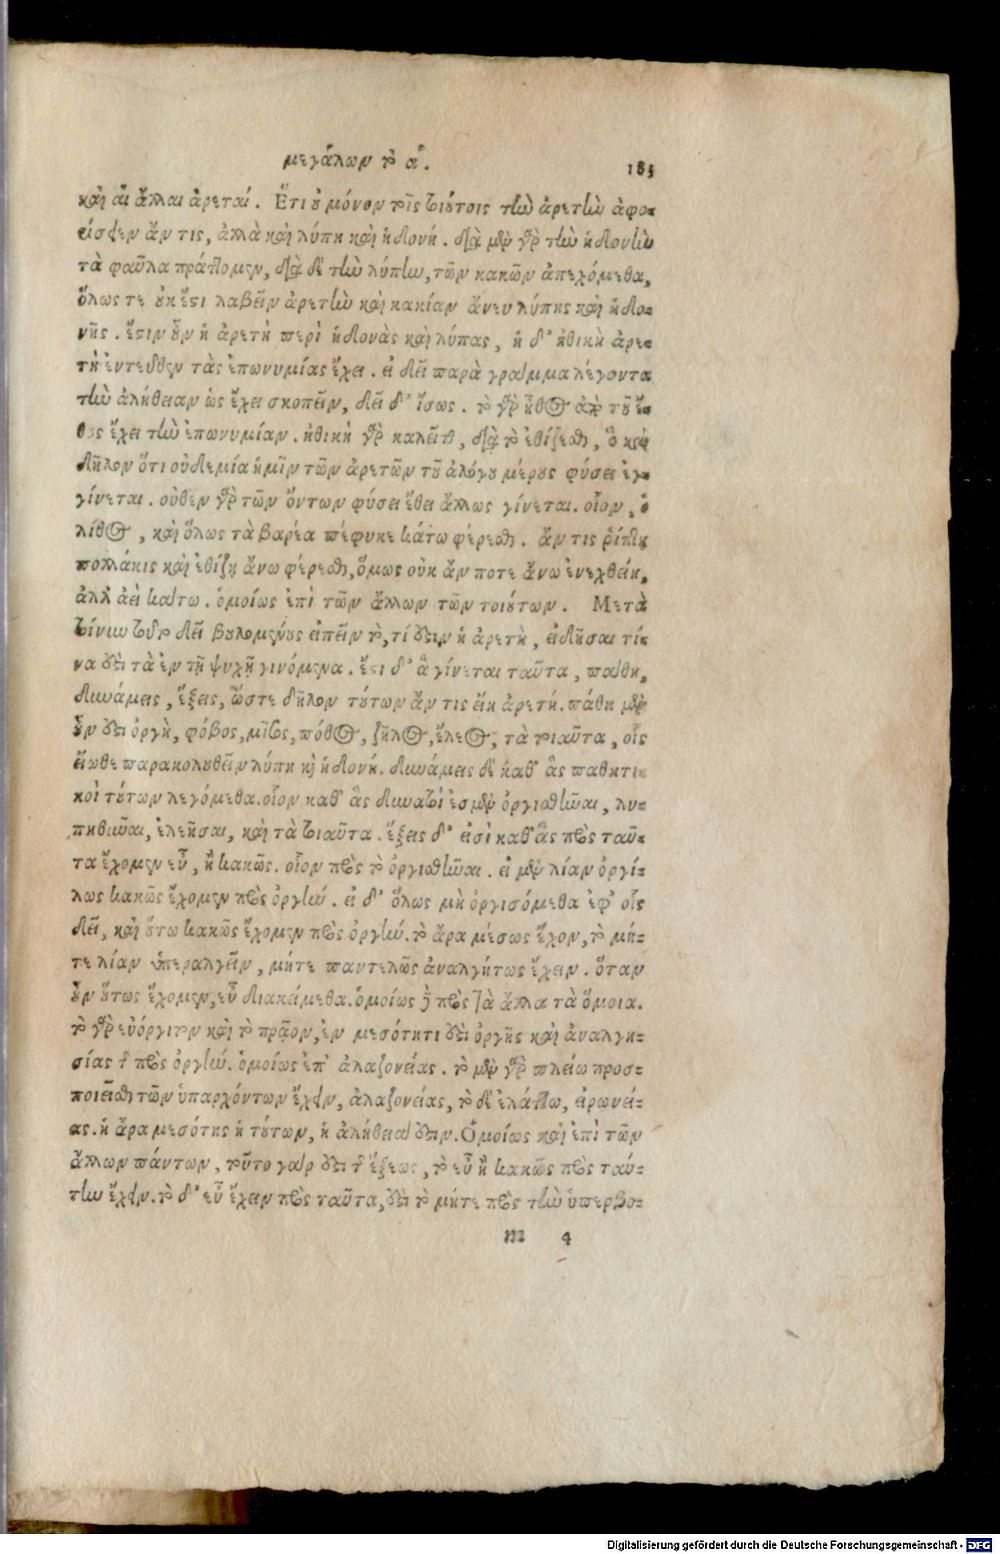 μεγάλων τὸ α΄.
183
καὶ αἱ ἄλλαι ἀρεταί. Ἔτι οὐ μόνον τοῖς τοιούτοις τὴν ἀρετὴν ἀφο-
είσειεν ἄν τις, ἀλλὰ καὶ λύπῃ καὶ ἡδονῇ. διὰ μὲν γὰρ τὴν ἡδονὴν
τὰ φαῦλα πράττομεν, διὰ δὲ τὴν λύπην, τῶν κακῶν ἀπεχόμεθα,
ὅλως τε οὐκ ἔστι λαβεῖν ἀρετὴν καὶ κακίαν ἄνευ λύπης καὶ ἡδο-
νῆς. ἔστιν οὖν ἡ ἀρετὴ περὶ ἡδονὰς καὶ λύπας, ἡ δ' ἠθικὴ ἀρε-
τὴ ἐντεῦθεν τὰς ἐπωνυμίας ἔχει. εἰ δεῖ παρὰ γράμμα λέγοντα
τὴν ἀλήθειαν ὡς ἔχει σκοπεῖν, δεῖ δ' ἴσως. τὸ γὰρ ἦθος ἀπὸ τοῦ ἔ-
θος ἔχει τὴν ἐπωνυμίαν. ἠθικὴ γὰρ καλεῖται, διὰ τὸ ἐθίζεσθαι, ὃ καὶ
δῆλον ὅτι οὐδεμία ἡμῖν τῶν ἀρετῶν τοῦ ἀλόγου μέρους φύσει ἐγ-
γίνεται. οὐθὲν γὰρ τῶν ὄντων φύσει ἔθει ἄλλως γίνεται. οἷον, ὁ
λίθος, καὶ ὅλως τὰ βαρέα πέφυκε κάτω φέρεσθαι. ἄν τις ῥίπτῃ
πολλάκις καὶ ἐθίζῃ ἄνω φέρεσθαι, ὅμως οὐκ ἄν ποτε ἄνω ἐνεχθείη,
ἀλλ' ἀεὶ κάτω. ὁμοίως ἐπὶ τῶν ἄλλων τῶν τοιούτων. Μετὰ
τοίνυν τοῦτο δεῖ βουλομένους εἰπεῖν τὸ, τί ἐστιν ἡ ἀρετὴ, εἰδῆσαι τί-
να ἐστὶ τὰ ἐν τῇ ψυχῇ γινόμενα. ἔστι δ' ἃ γίνεται ταῦτα, πάθη,
δυνάμεις, ἕξεις, ὥστε δῆλον τούτων ἄν τις εἴη ἀρετή. πάθη μὲν
οὖν ἐστὶ ὀργὴ, φόβος, μῖσος, πόθος, ζῆλος, ἔλεος, τὰ τοιαῦτα, οἷς
εἴωθε παρακολουθεῖν λύπη καὶ ἡδονή. δυνάμεις δὲ καθ' ἃς παθητι-
κοὶ τούτων λεγόμεθα. οἷον καθ' ἃς δυνατοί ἐσμὲν ὀργισθῆναι, λυ-
πηθῆναι, ἐλεῆσαι, καὶ τὰ τοιαῦτα. ἕξεις δ' εἰσὶ καθ' ἃς πρὸς ταῦ-
τα ἔχομεν εὖ, ἢ κακῶς. οἷον πρὸς τὸ ὀργισθῆναι. εἰ μὲν λίαν ὀργί-
λως κακῶς ἔχομεν πρὸς ὀργήν. εἰ δ' ὅλως μὴ ὀργισόμεθα ἐφ' οἷς
δεῖ, καὶ οὕτω κακῶς ἔχομεν πρὸς ὀργήν. τὸ ἄρα μέσως ἔχον, τὸ μή-
τε λίαν ὑπεραλγεῖν, μήτε παντελῶς ἀναλγήτως ἔχειν. ὅταν
οὖν οὕτως ἔχομεν, εὖ διακείμεθα. ὁμοίως δὲ πρὸς τὰ ἄλλα τὰ ὅμοια.
τὸ γὰρ εὐόργιτον καὶ τὸ πρᾷον, ἐν μεσότητι ἐστὶ ὀργῆς καὶ ἀναλγη-
σίας τῆς πρὸς ὀργήν. ὁμοίως ἐπ' ἀλαζονείας. τὸ μὲν γὰρ πλείω προσ-
ποιεῖσθαι τῶν ὑπαρχόντων ἔχειν, ἀλαζονείας, τὸ δὲ ἐλάττω, εἰρωνεί-
ας. ἡ ἄρα μεσότης ἡ τούτων, ἡ ἀλήθειά ἐστιν. Ὁμοίως καὶ ἐπὶ τῶν
ἄλλων πάντων, τοῦτο γάρ ἐστι τῆς ἕξεως, τὸ εὖ ἢ κακῶς πρὸς ταύ-
την ἔχειν. τὸ δ' εὖ ἔχειν πρὸς ταῦτα, ἐστὶ τὸ μήτε πρὸς τὴν ὑπερβο-
m 4
Digitalisierung gefördert durch die Deutsche Forschungsgemeinschaft - DFG